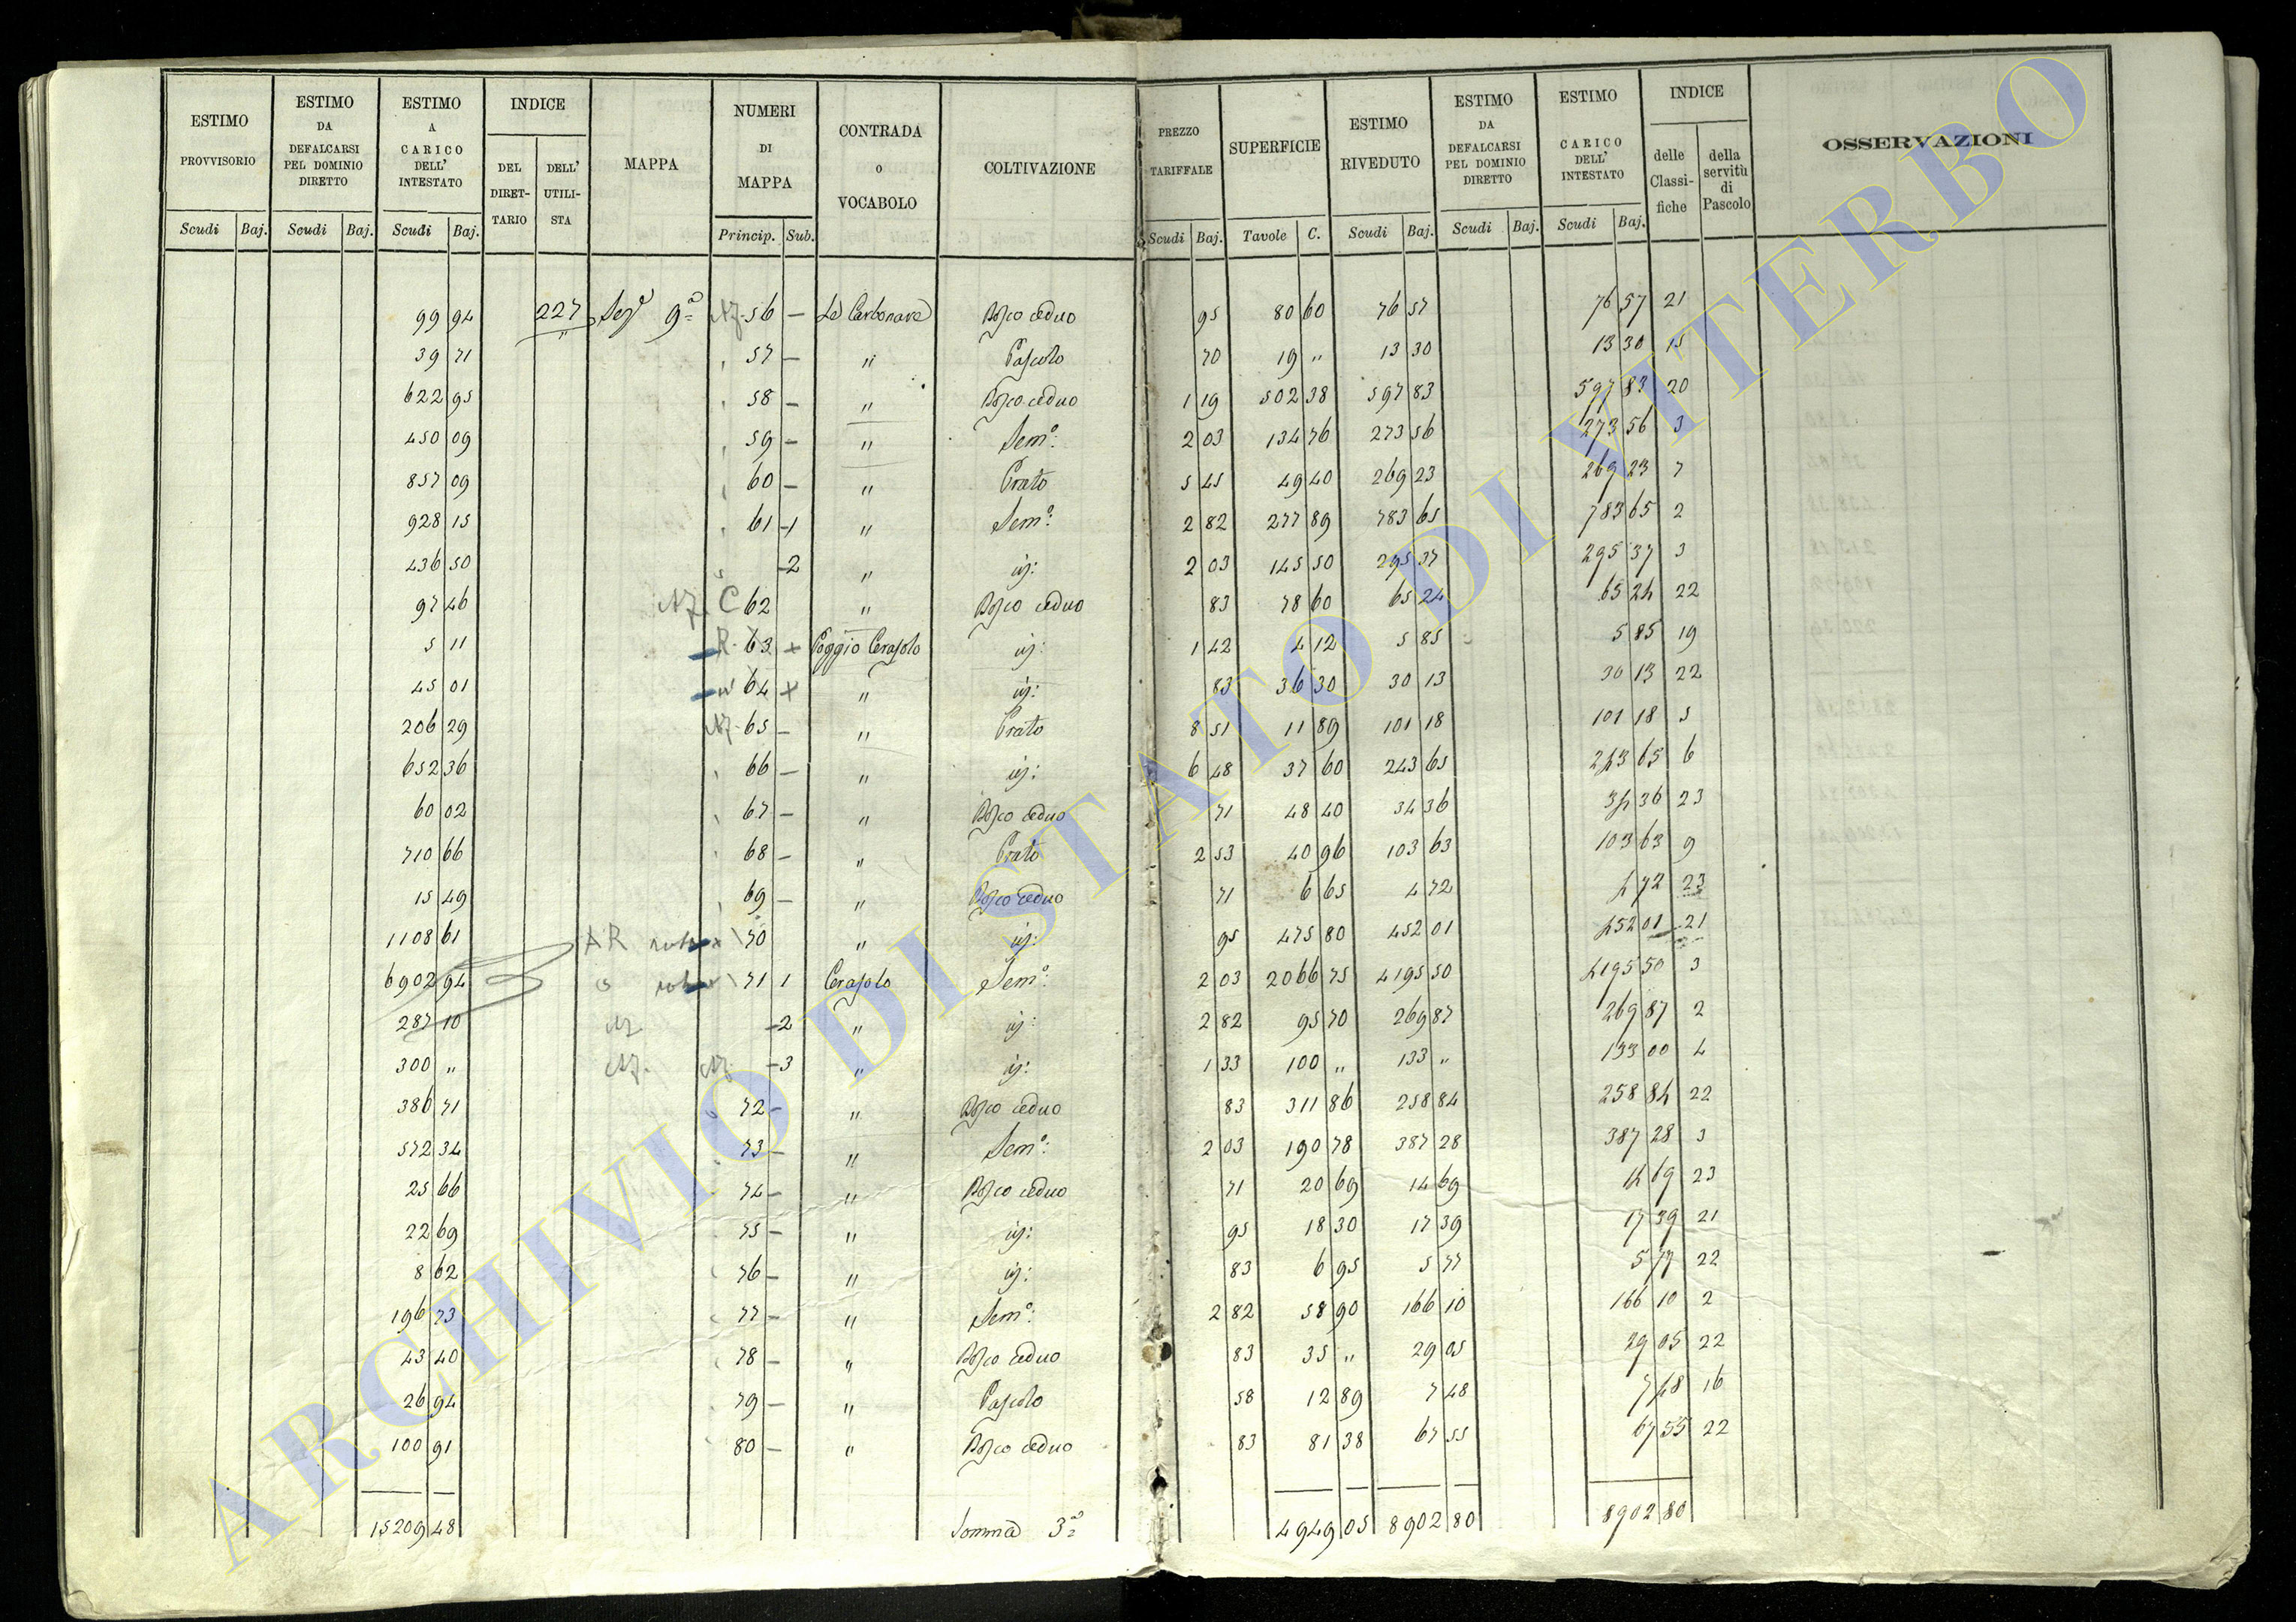 ESTIMO PROVVISORIO | ESTIMO DA DEFALCARSI PEL DOMINIO DIRETTO | ESTIMO A CARICO DELL' INTESTATO | INDICE DEL DIRETTARIO | DELL' UTILISTA | MAPPA | NUMERI DI MAPPA | CONTRADA o VOCABOLO | COLTIVAZIONE | PREZZO TARIFFALE | SUPERFICIE | ESTIMO RIVEDUTO | ESTIMO DA DEFALCARSI PEL DOMINIO DIRETTO | ESTIMO CARICO DELL' INTESTATO | INDICE delle Classifiche | della servitù di Pascolo | OSSERVAZIONI
Scudi | Baj. | Scudi | Baj. | Scudi | Baj. | Princip. | Sub. | Scudi | Baj. | Tavole | C. | Scudi | Baj. | Scudi | Baj. | Scudi | Baj.
99 94 | 227 | Sez.e 9a | 56 — | La Carbonara | Bosco ceduo | 95 | 80 60 | 76 57 | 76 57 | 21
39 71 | 57 — | " | Pascolo | 70 | 19 " | 13 30 | 13 30 | 15
622 95 | 58 — | " | Bosco ceduo | 1 19 | 502 38 | 597 83 | 597 83 | 20
450 09 | 59 — | " | Sem.o: | 2 03 | 134 76 | 273 56 | 273 56 | 3
857 09 | 60 — | " | Prato | 5 45 | 49 40 | 269 23 | 269 23 | 7
928 15 | 61 -1 | " | Sem.o: | 2 82 | 277 89 | 783 65 | 783 65 | 2
436 50 | -2 | " | id: | 2 03 | 145 50 | 295 37 | 295 37 | 3
97 46 | C 62 | " | Bosco ceduo | 83 | 78 60 | 65 24 | 65 24 | 22
5 11 | R. 63 + | Poggio Cerasolo | id: | 1 42 | 4 12 | 5 85 | 5 85 | 19
45 01 | 64 + | " | id: | 83 | 36 30 | 30 13 | 30 13 | 22
206 29 | 65 — | " | Prato | 8 51 | 11 89 | 101 18 | 101 18 | 5
652 36 | 66 — | " | id: | 6 48 | 37 60 | 243 65 | 243 65 | 6
60 02 | 67 — | " | Bosco ceduo | 71 | 48 40 | 34 36 | 34 36 | 23
710 66 | 68 — | " | Prato | 2 53 | 40 96 | 103 63 | 103 63 | 9
15 49 | 69 — | " | Bosco ceduo | 71 | 6 65 | 4 72 | 4 72 | 23
1108 61 | AR | 70 | " | id: | 95 | 475 80 | 452 01 | 452 01 | 21
6902 94 | 71 1 | Cerasolo | Sem.o: | 2 03 | 2066 75 | 4195 50 | 4195 50 | 3
287 10 | -2 | " | id: | 2 82 | 95 70 | 269 87 | 269 87 | 2
300 " | -3 | " | id: | 1 33 | 100 " | 133 " | 133 00 | 4
386 71 | 72 - | " | Bosco ceduo | 83 | 311 86 | 258 84 | 258 84 | 22
572 34 | 73 - | " | Sem.o: | 2 03 | 190 78 | 387 28 | 387 28 | 3
25 66 | 74 - | " | Bosco ceduo | 71 | 20 69 | 14 69 | 14 69 | 23
22 69 | 75 - | " | id: | 95 | 18 30 | 17 39 | 17 39 | 21
8 62 | 76 - | " | id: | 83 | 6 95 | 5 77 | 5 77 | 22
196 73 | 77 - | " | Sem.o: | 2 82 | 58 90 | 166 10 | 166 10 | 2
43 40 | 78 - | " | Bosco ceduo | 83 | 35 " | 29 05 | 29 05 | 22
26 94 | 79 — | " | Pascolo | 58 | 12 89 | 7 48 | 7 48 | 16
100 91 | 80 — | " | Bosco ceduo | 83 | 81 38 | 67 55 | 67 55 | 22
15209 48 | Somma 3a | 4949 05 | 8902 80 | 8902 80
ARCHIVIO DI STATO DI VITERBO